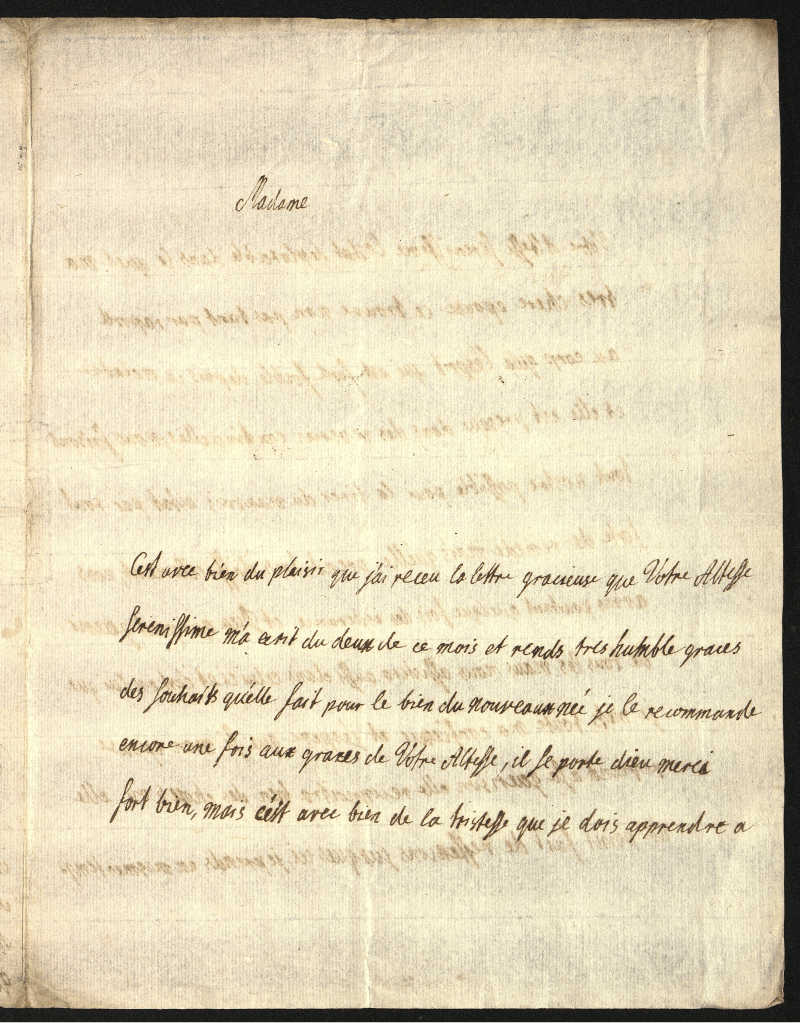 Madame
C'est avec bien du plaisir que j'ai receu la lettre gracieuse que Votre Altesse
serenissime m'a ecrit du deux de ce mois et rends tres humble graces
des souhaits qu'elle fait pour le bien du nouveaunnée je le recommande
encore une fois aux graces de Votre Altesse, il se porte dieu merci
fort bien, mais c'est avec bien de la tristesse que je dois apprendre a